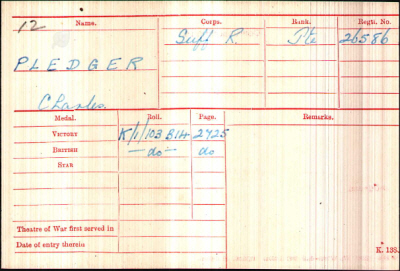 12 Name. Corps. Rank. Regtl. No.
Suff R. Pte 26586
PLEDGER
Charles.
Medal. Roll. Page. Remarks.
VICTORY K/1/103 B14 2725
BRITISH —do— do
STAR
Theatre of War first served in
Date of entry therein
K. 138.